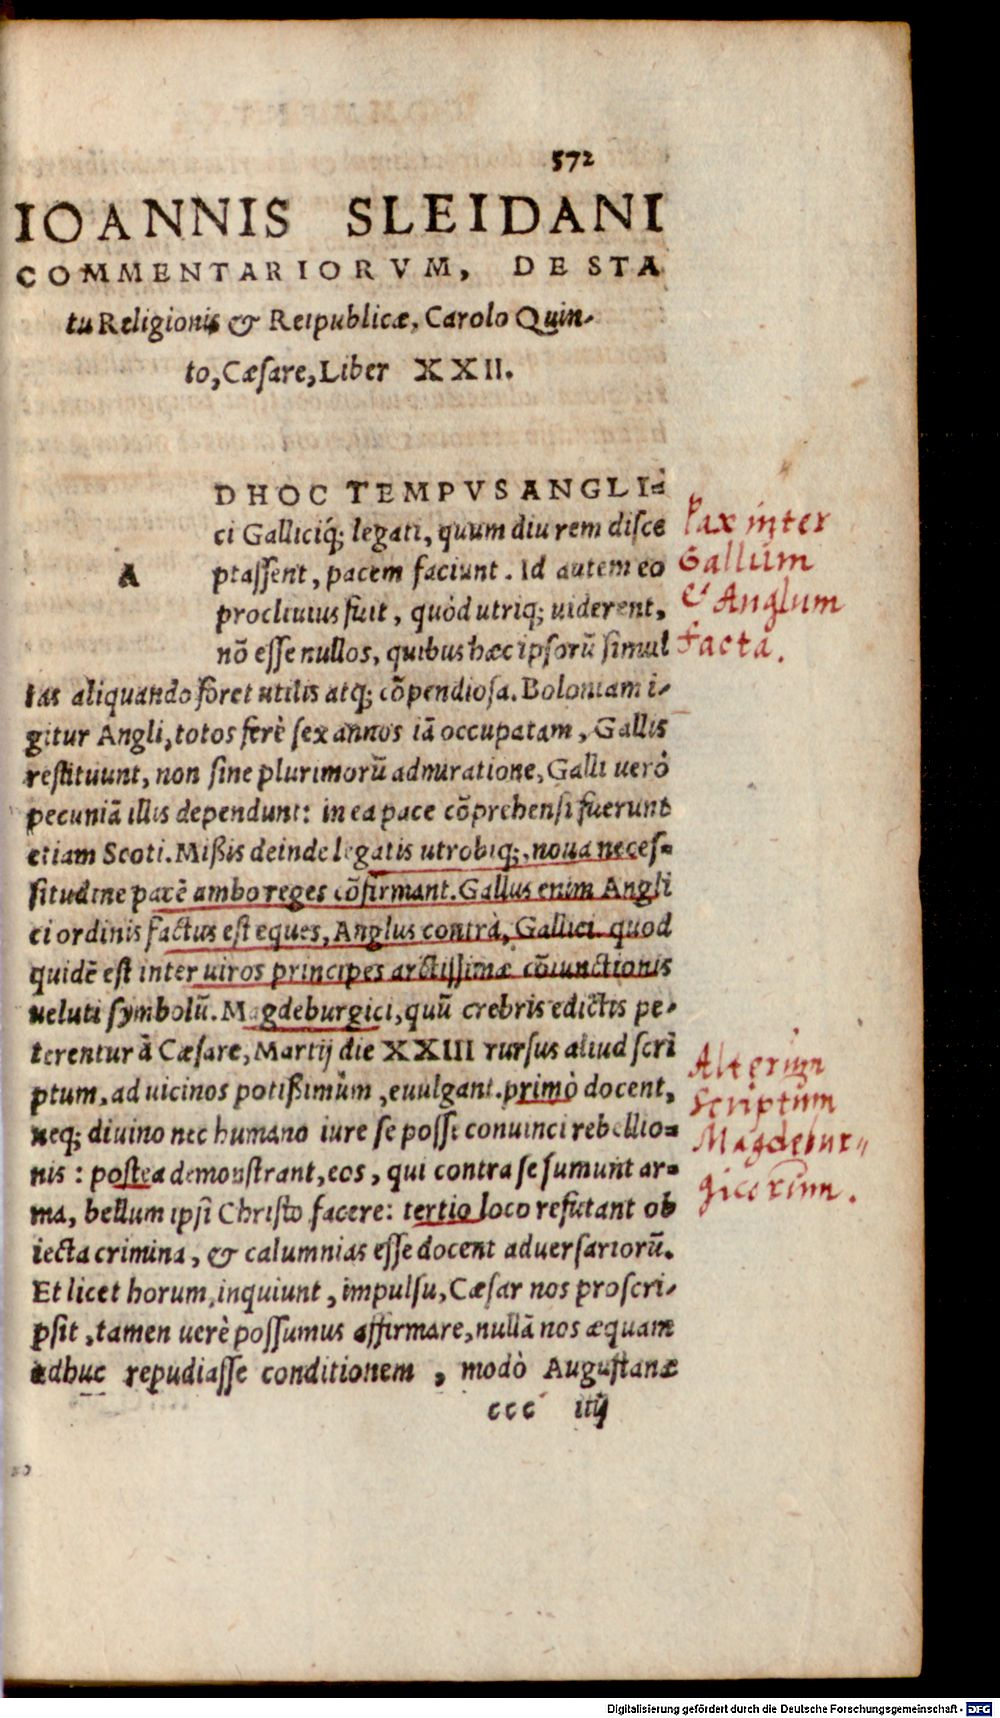 572
IOANNIS SLEIDANI
COMMENTARIORVM, DE STA
tu Religionis & Reipublicæ, Carolo Quin-
to, Cæsare, Liber XXII.
A
D HOC TEMPVS ANGLI=
ci Galliciq́; legati, quum diu rem disce
ptassent, pacem faciunt. Id autem eo
procliuius fuit, quòd utriq; uiderent,
nō esse nullos, quibus hæc ipsorū simul
tas aliquando foret utilis atq; cōpendiosa. Boloniam i-
gitur Angli, totos ferè sex annos iā occupatam, Gallis
restituunt, non sine plurimorū admiratione, Galli uerò
pecuniā illis dependunt: in ea pace cōprehensi fuerunt
etiam Scoti. Mißis deinde legatis utrobiq;, noua neces=
situdine pacē ambo reges cōfirmant. Gallus enim Angli
ci ordinis factus est eques, Anglus contrà, Gallici. quod
quidē est inter uiros principes arctissimæ cōiunctionis
ueluti symbolū. Magdeburgici, quū crebris edictis pe-
terentur à Cæsare, Martij die XXIII rursus aliud scri
ptum, ad uicinos potißimùm, euulgant. primò docent,
neq; diuino nec humano iure se posse conuinci rebellio=
nis: postea demonstrant, eos, qui contra se sumunt ar=
ma, bellum ipsi Christo facere: tertio loco refutant ob
iecta crimina, & calumnias esse docent aduersariorū.
Et licet horum, inquiunt, impulsu, Cæsar nos proscri-
psit, tamen uerè possumus affirmare, nullā nos æquam
adhuc repudiasse conditionem, modò Augustanæ
ccc iiij
Pax inter
Gallum
& Anglum
facta.
Alterum
Scriptum
Magdebur„
gicorum.
Digitalisierung gefördert durch die Deutsche Forschungsgemeinschaft - DFG